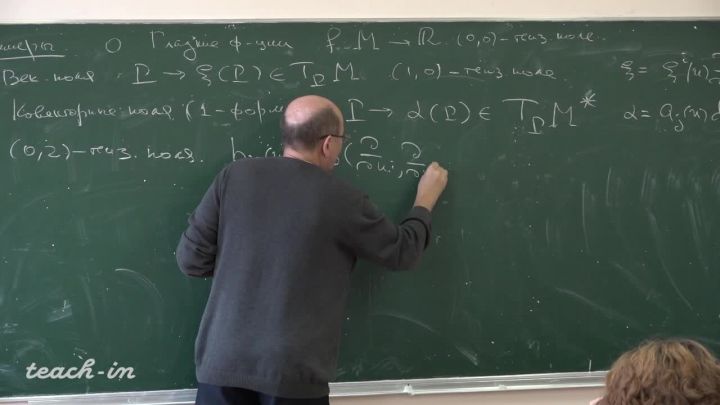 меры 0 Гладкие ф-ции f: M → ℝ. (0,0)-тенз. поле.
Век. поля P → ξ(P) ∈ T_P M. (1,0)-тенз. поле. ξ = ξ^i(u)
Ковекторные поля (1-форм P → α(P) ∈ T_P M* α = a_j(u) d
(0,2)-тенз. поля. b (∂/∂u^i, ∂/∂
teach-in